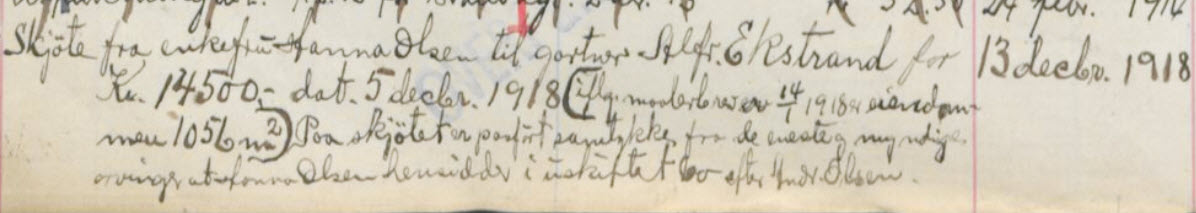 Kr. 32.50 24 febr. 1916
Skjöte fra enkefru Hanna Olsen til gartner Alfr. Ekstrand for 13 decbr. 1918
Kr. 14500,- dat. 5 decbr. 1918 (iflg. maalebrev av 14/1 1918 er eiendom-
men 1056 m²) Paa skjötet er paaført samtykke fra de eneste og myndige
arvinger at Hanna Olsen hensidder i uskiftet bo efter Andr. Olsen.